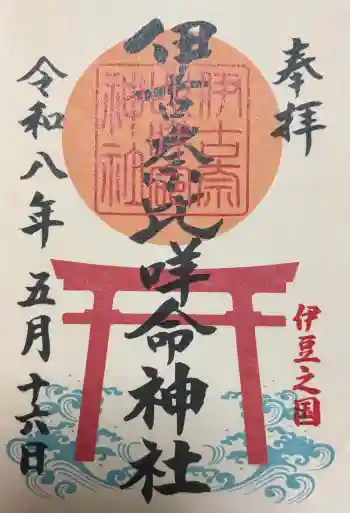 奉拝
伊豆之国
伊古奈比咩命神社
伊古奈
神社
令和八年 五月 十六日